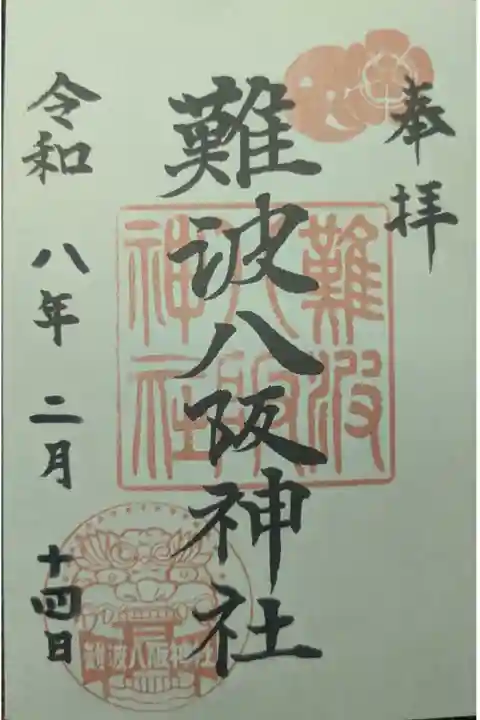 奉拝
難波八阪神社
令和 八年 二月 十四日
難波
八阪
神社
難波八阪神社